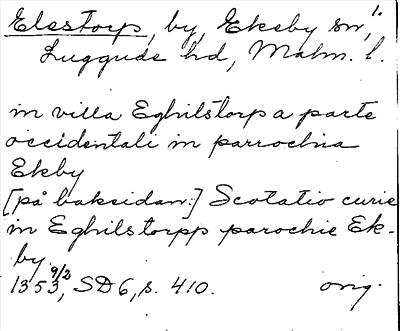 Elestorp, by, Ekeby sn, 1.
Luggude hd, Malm. l.
in villa Eghilstorp a parte
occidentali in parrochia
Ekby
[på baksidan:] Scotatio curie
in Eghilstorpp parochie Ek-
by.
1353 9/2, SD 6, s. 410. orig.